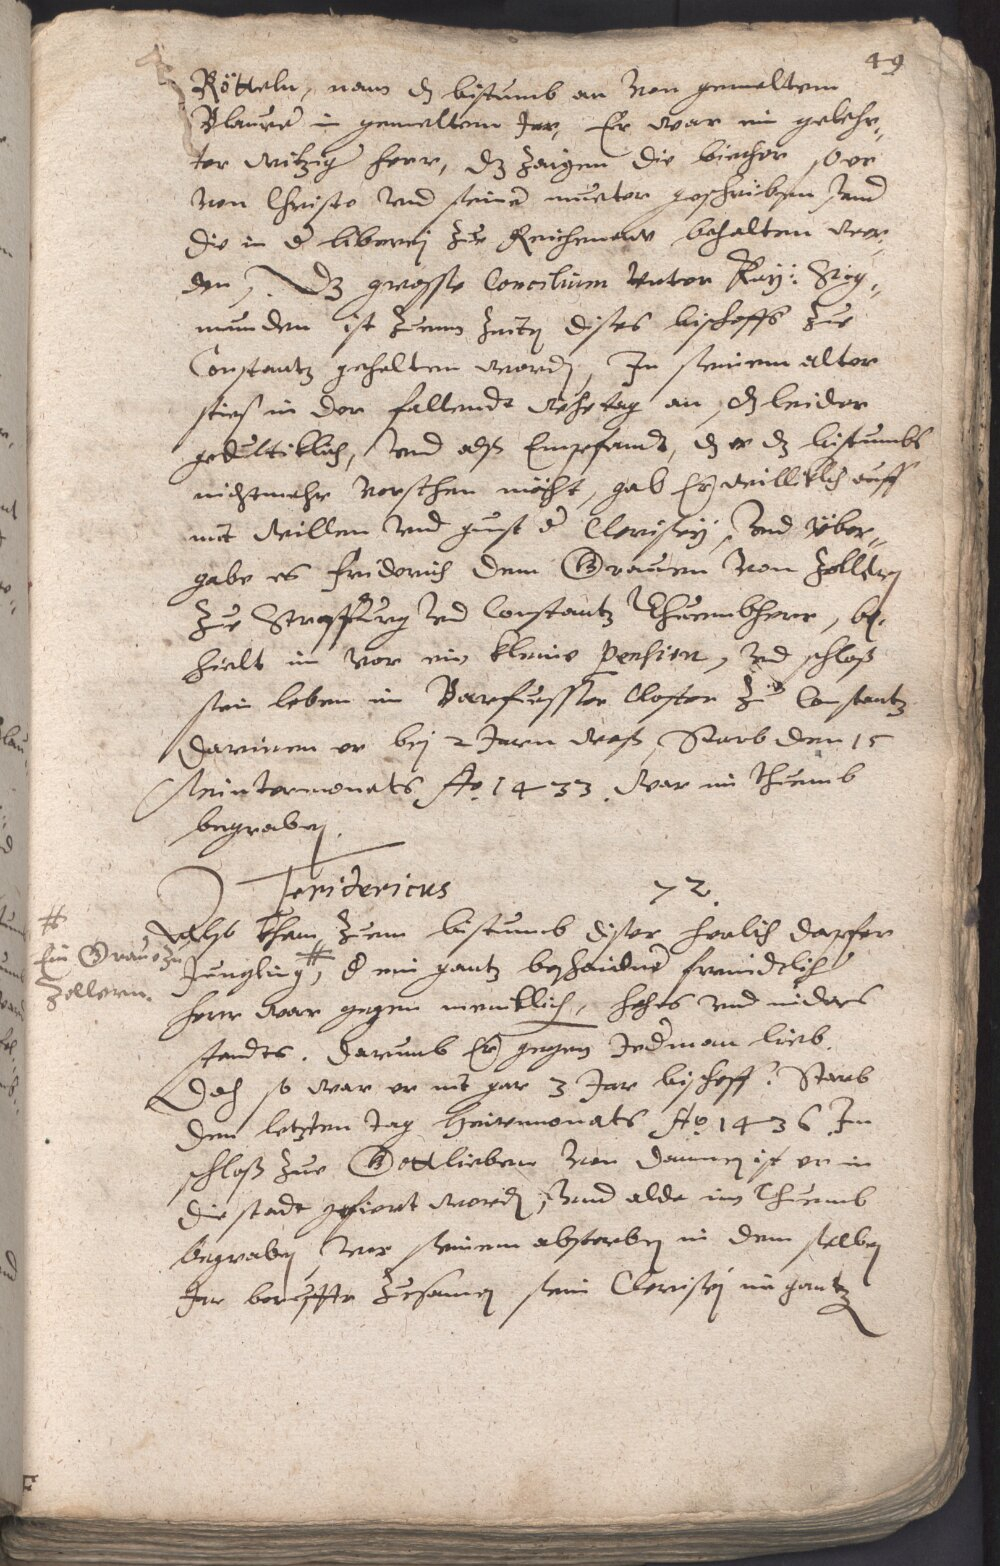 49
Rötteln, nam dz bistumb an von gemeltem
Blaurer in gemeltem Jar, Er war ein gelehr„
ter witziger herr, dz zaigen die biecher, so er
von Christo vnd seiner mueter geschriben vnd
die in d liberej zue Reichenaw behalten wer„
den. Dz grosse Concilium vnter Kay: Sig„
munden ist zuem zeitē dises bischoffs zue
Constantz gehalten wordē, In seinem alter
sties in der fallende wehetag an, dz leider
gedultiklich, vnd alß Empfandt, dz er dz bistumbs
nichtmehr vorsehen möcht, gab Er williklich auff
mit willen vnd gunst d Clerisey, vnd über„
gabe es friderich dem Grauen von Zollern
zue Straßburg vnd Constantz Thuembherr, be„
hielt im vor ein kleine pension, vnd schloß
sein leben im Barfuesser Closter zu Constantz
darinnen er bej 2 Jarn waß, Starb den 15
Wintermonats Ao. 1433. war im thuemb
begrabē.
Fridericus 72.
Alß kham zuem bistumb diser herlich dapfer
Jungling #, d ein gantz beschaidner freindtlicher
herr war gegen meniklich, hohes vnd niders
standts. darumb Er gegen Jederman lieb.
Doch so war er nit gar 3 Jar bischoff. Starb
den letzten tag Heuwmonats Ao. 1436 Im
schloß zue Gottlieben von dannen ist er in
die stadt gefiert wordē, vnd alda im Thuemb
begrabē, vor seinem absterbē in dem selbē
Jar berueffte zusamē sein Clerisej im gantz
#
Ein Graue zu
Zollern.